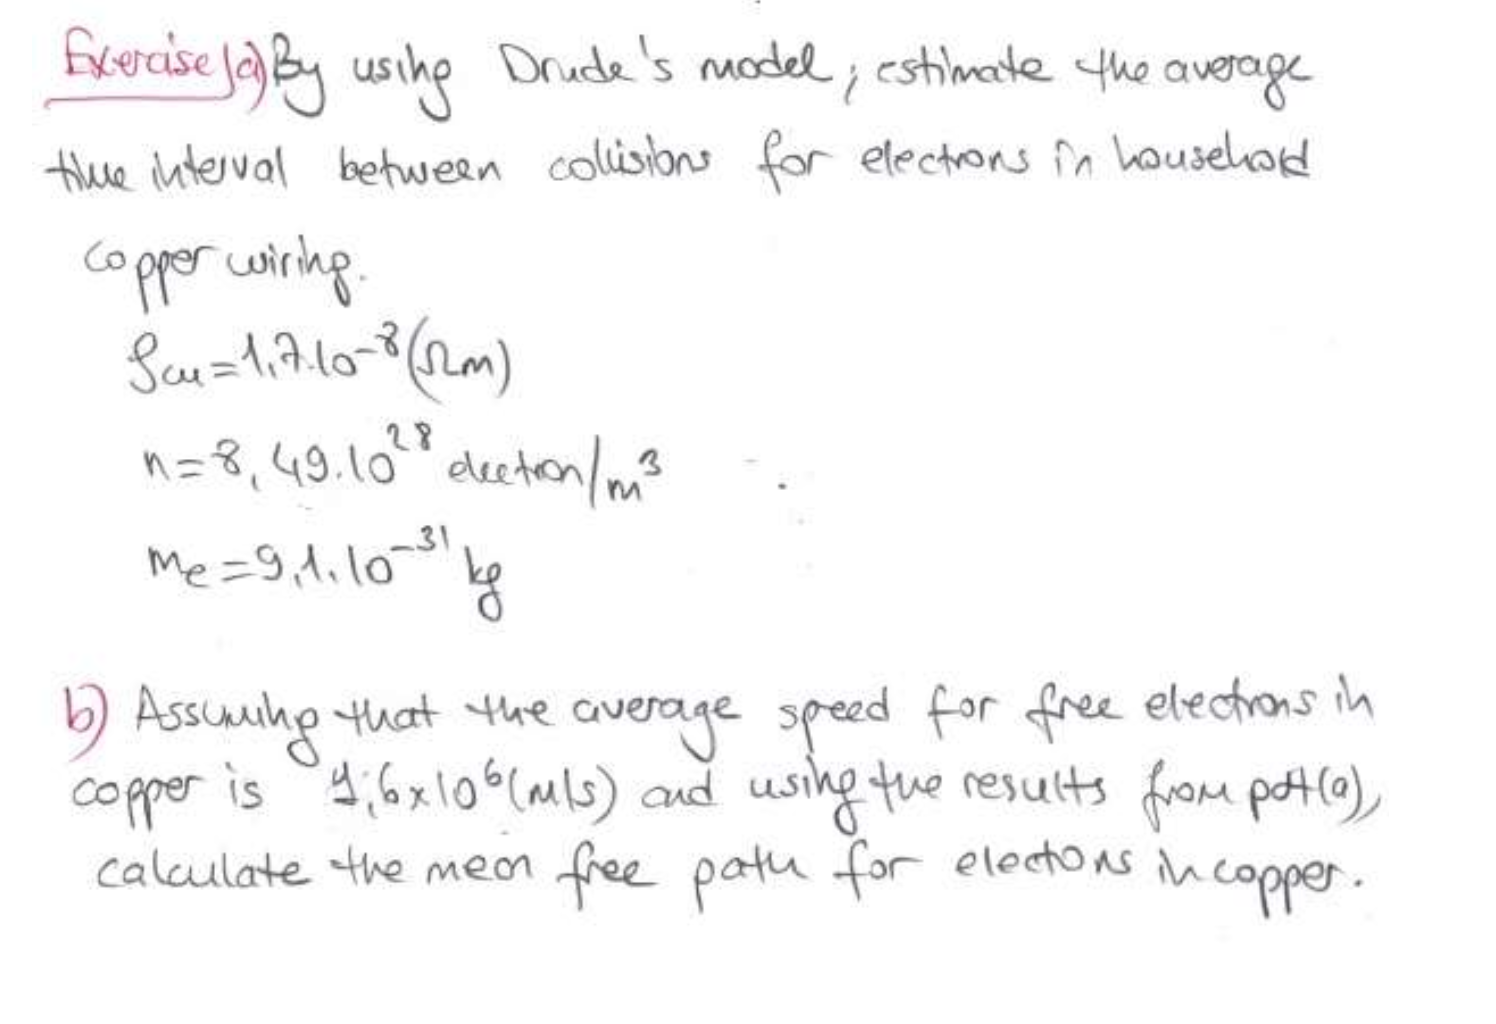 Exercise (a) By using Drude's model, estimate the average
time interval between collisions for electrons in household
copper wiring.
ρcu=1,7.10⁻⁸(Ωm)
n=8,49.10²⁸ electron/m³
me=9,1.10⁻³¹ kg
b) Assuming that the average speed for free electrons in
copper is 1,6x10⁶(m/s) and using the results from part(a),
calculate the mean free path for electons in copper.